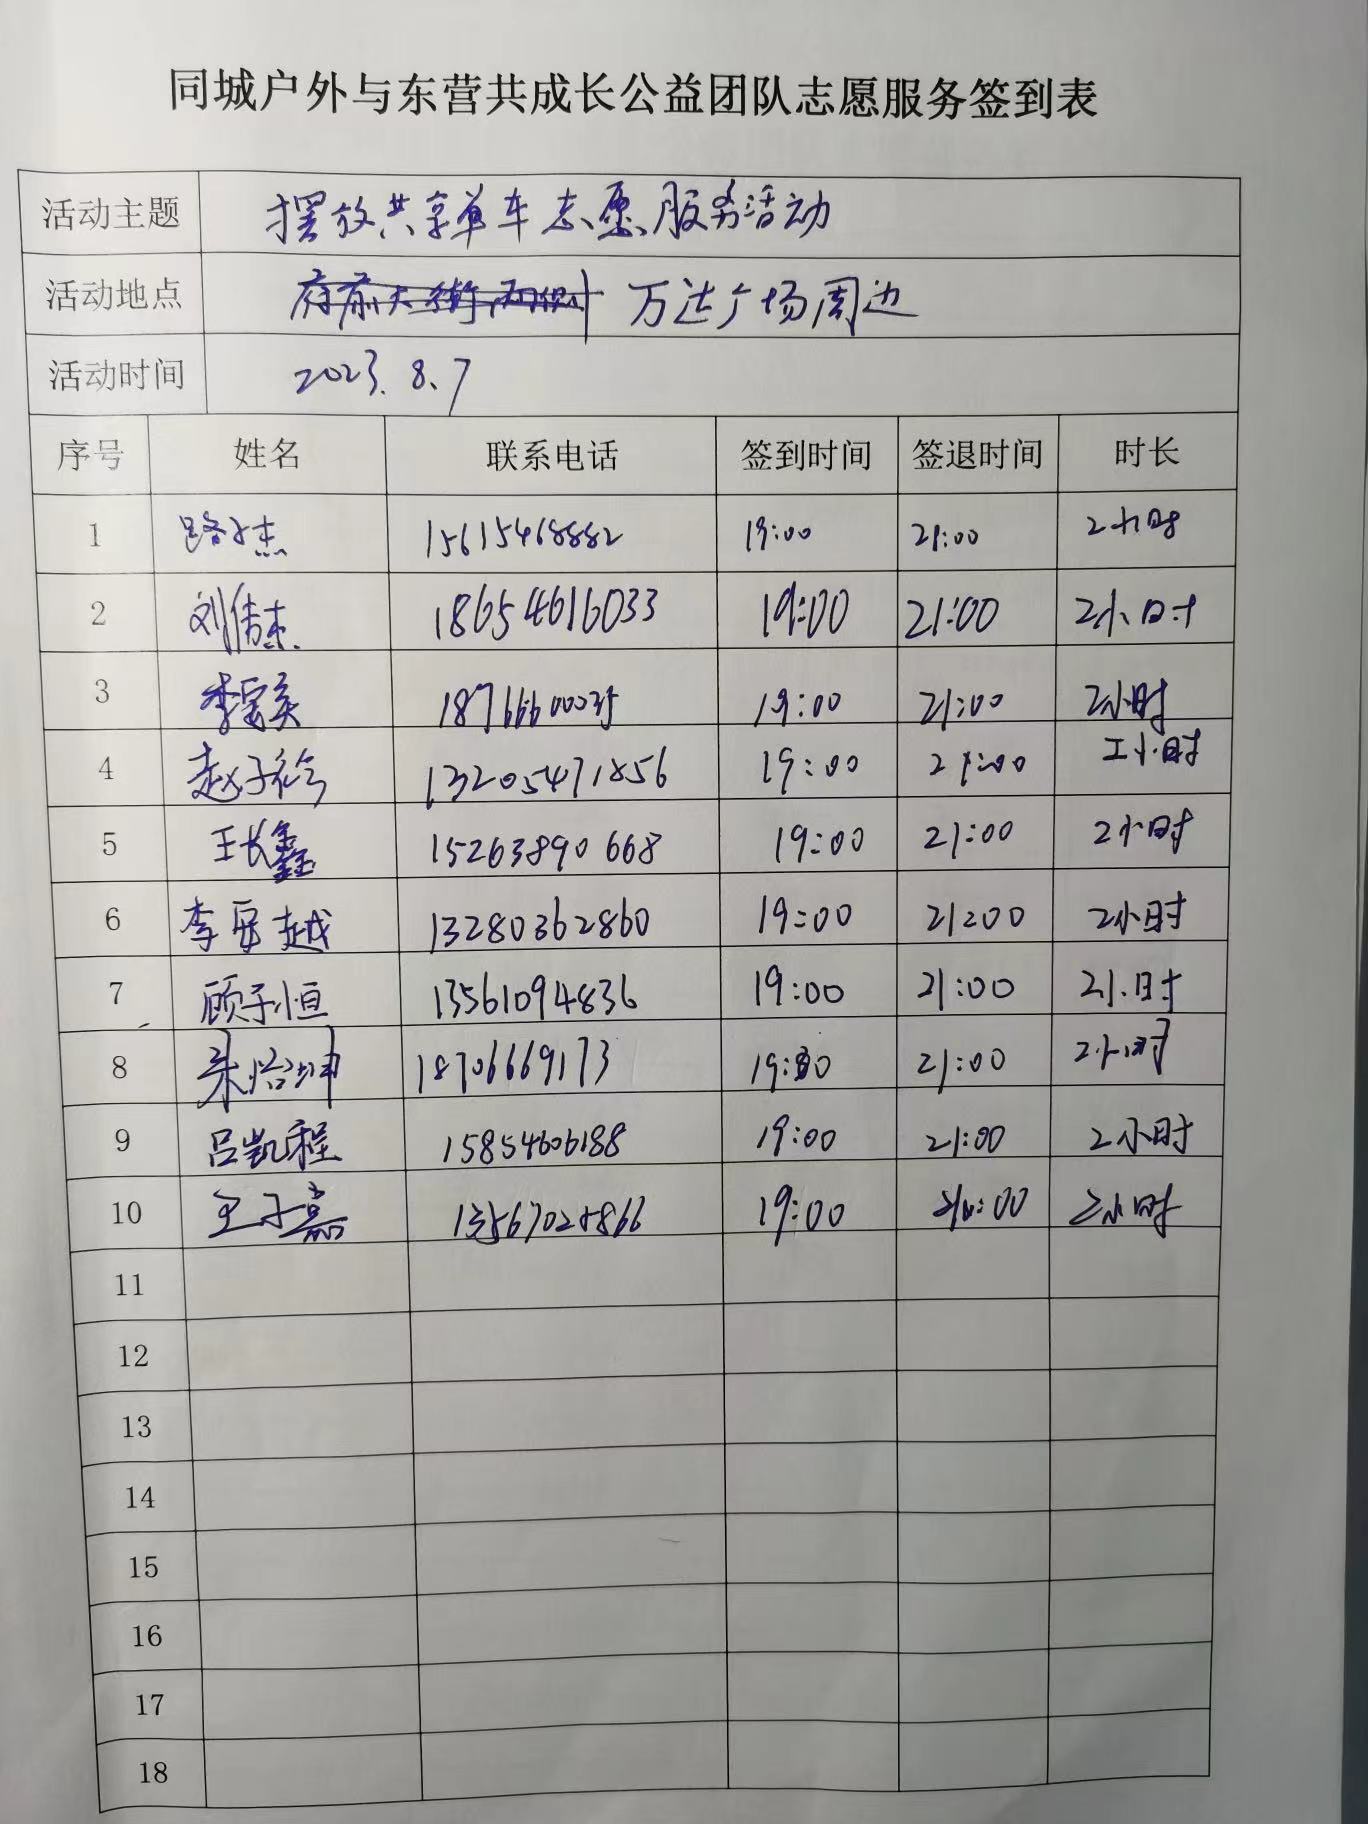 同城户外与东营共成长公益团队志愿服务签到表
活动主题 摆放共享单车志愿服务活动
活动地点 府前大街两侧 万达广场周边
活动时间 2023.8.7
序号 姓名 联系电话 签到时间 签退时间 时长
1 路人杰 15615468882 19:00 21:00 2小时
2 刘倩杰 18654616033 19:00 21:00 2小时
3 李 19:00 21:00 2小时
4 赵子衿 13205471856 19:00 21:00 2小时
5 王长鑫 15263890668 19:00 21:00 2小时
6 李安越 13280362860 19:00 21:00 2小时
7 顾子恒 13561094836 19:00 21:00 2小时
8 18706669173 21:00 2小时
9 吕凯程 15854606188 19:00 21:00 2小时
10 王子嘉 19:00 21:00 2小时
11
12
13
14
15
16
17
18